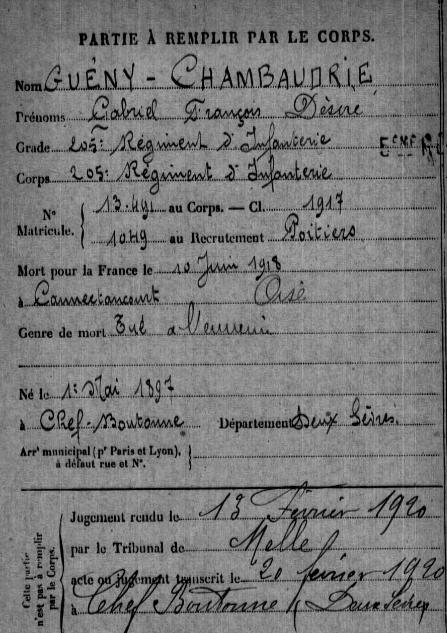 PARTIE À REMPLIR PAR LE CORPS.
Nom GUÉNY - CHAMBAUDRIE
Prénoms Gabriel François Désiré
Grade 205e Régiment d'Infanterie
Corps 205e Régiment d'Infanterie
N° Matricule. 13.491 au Corps. — Cl. 1917
1049 au Recrutement Poitiers
Mort pour la France le 10 Juin 1918
à Cannectancourt Oise
Genre de mort Tué a l'ennemi
Né le 1er Mai 1897
à Chef-Boutonne Département Deux Sèvres.
Arr' municipal (p' Paris et Lyon),
à défaut rue et N°.
Cette partie n'est pas à remplir par le Corps.
Jugement rendu le 13 Février 1920
par le Tribunal de Melle
acte ou jugement transcrit le 20 février 1920
à Chef Boutonne (Deux Sèvres